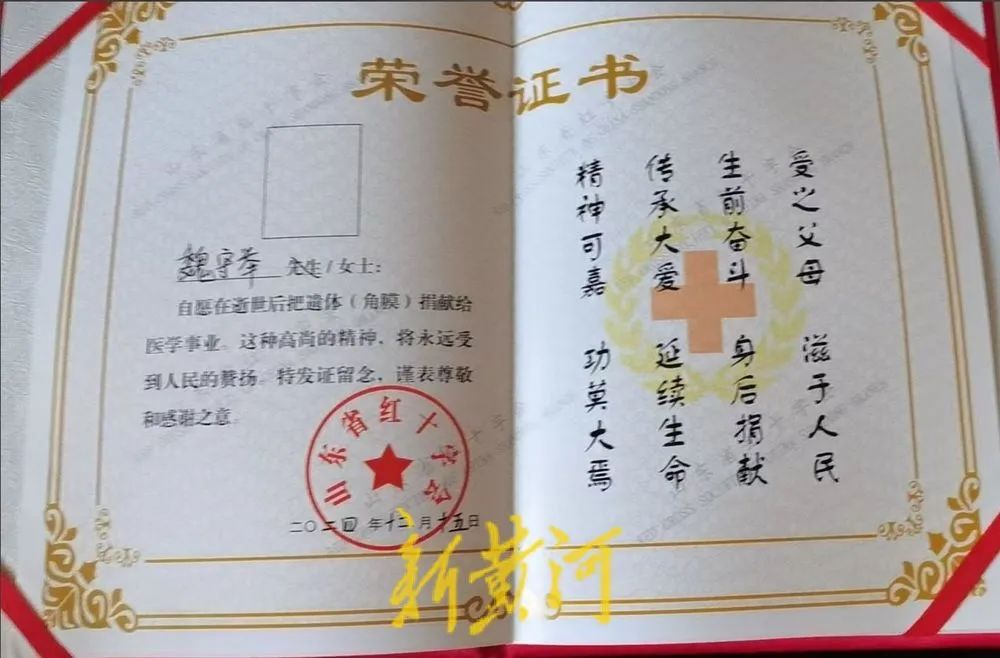 荣誉证书
先生/女士：
自愿在逝世后把遗体（角膜）捐献给
医学事业。这种高尚的精神，将永远受
到人民的赞扬。特发证留念，谨表尊敬
和感谢之意。
山东省红十字会
二〇二四年十二月十五日
受之父母 滋于人民
生前奋斗 身后捐献
传承大爱 延续生命
精神可嘉 功莫大焉
新黄河